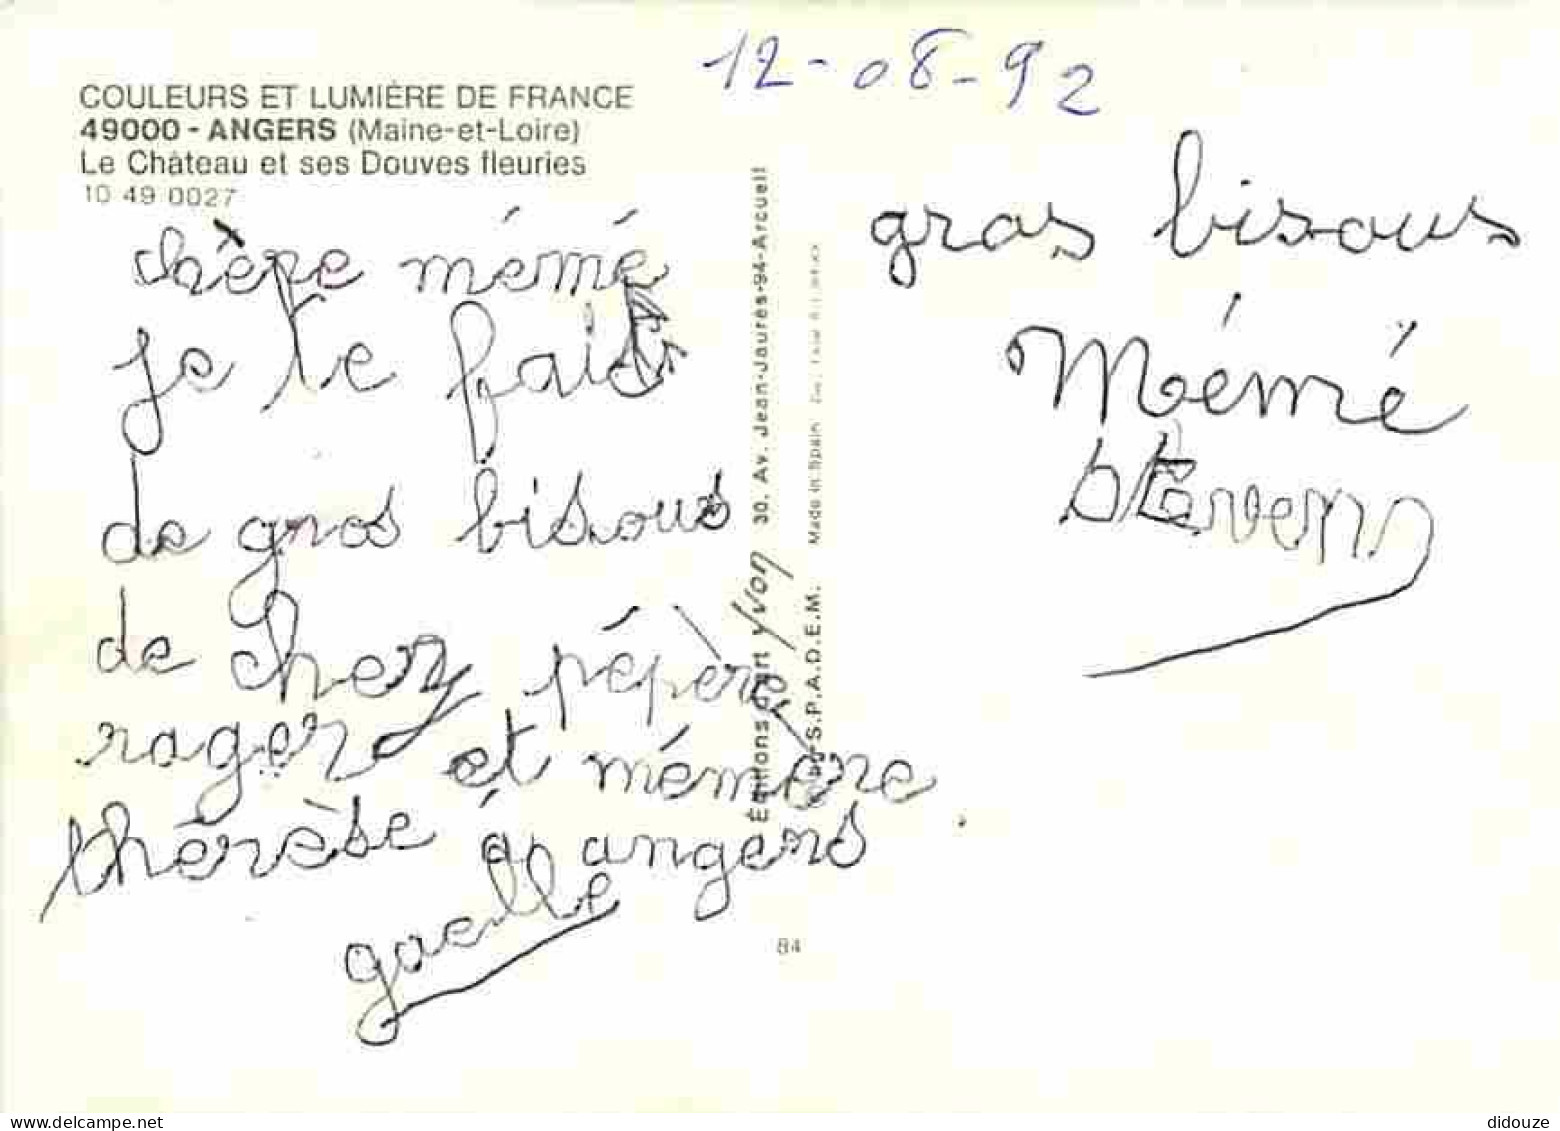 12-08-92
COULEURS ET LUMIÈRE DE FRANCE
49000 - ANGERS (Maine-et-Loire)
Le Château et ses Douves fleuries
10 49 0027
chère mémé
je te fait
de gros bisous
de chez pépère
roger et mémère
thérèse á angers
gaelle
Éditions d'art Yvon 30. Av. Jean-Jaurès-94-Arcueil
S.P.A.D.E.M. Made in Spain
84
gros bisous
Mémé
steven
didouze